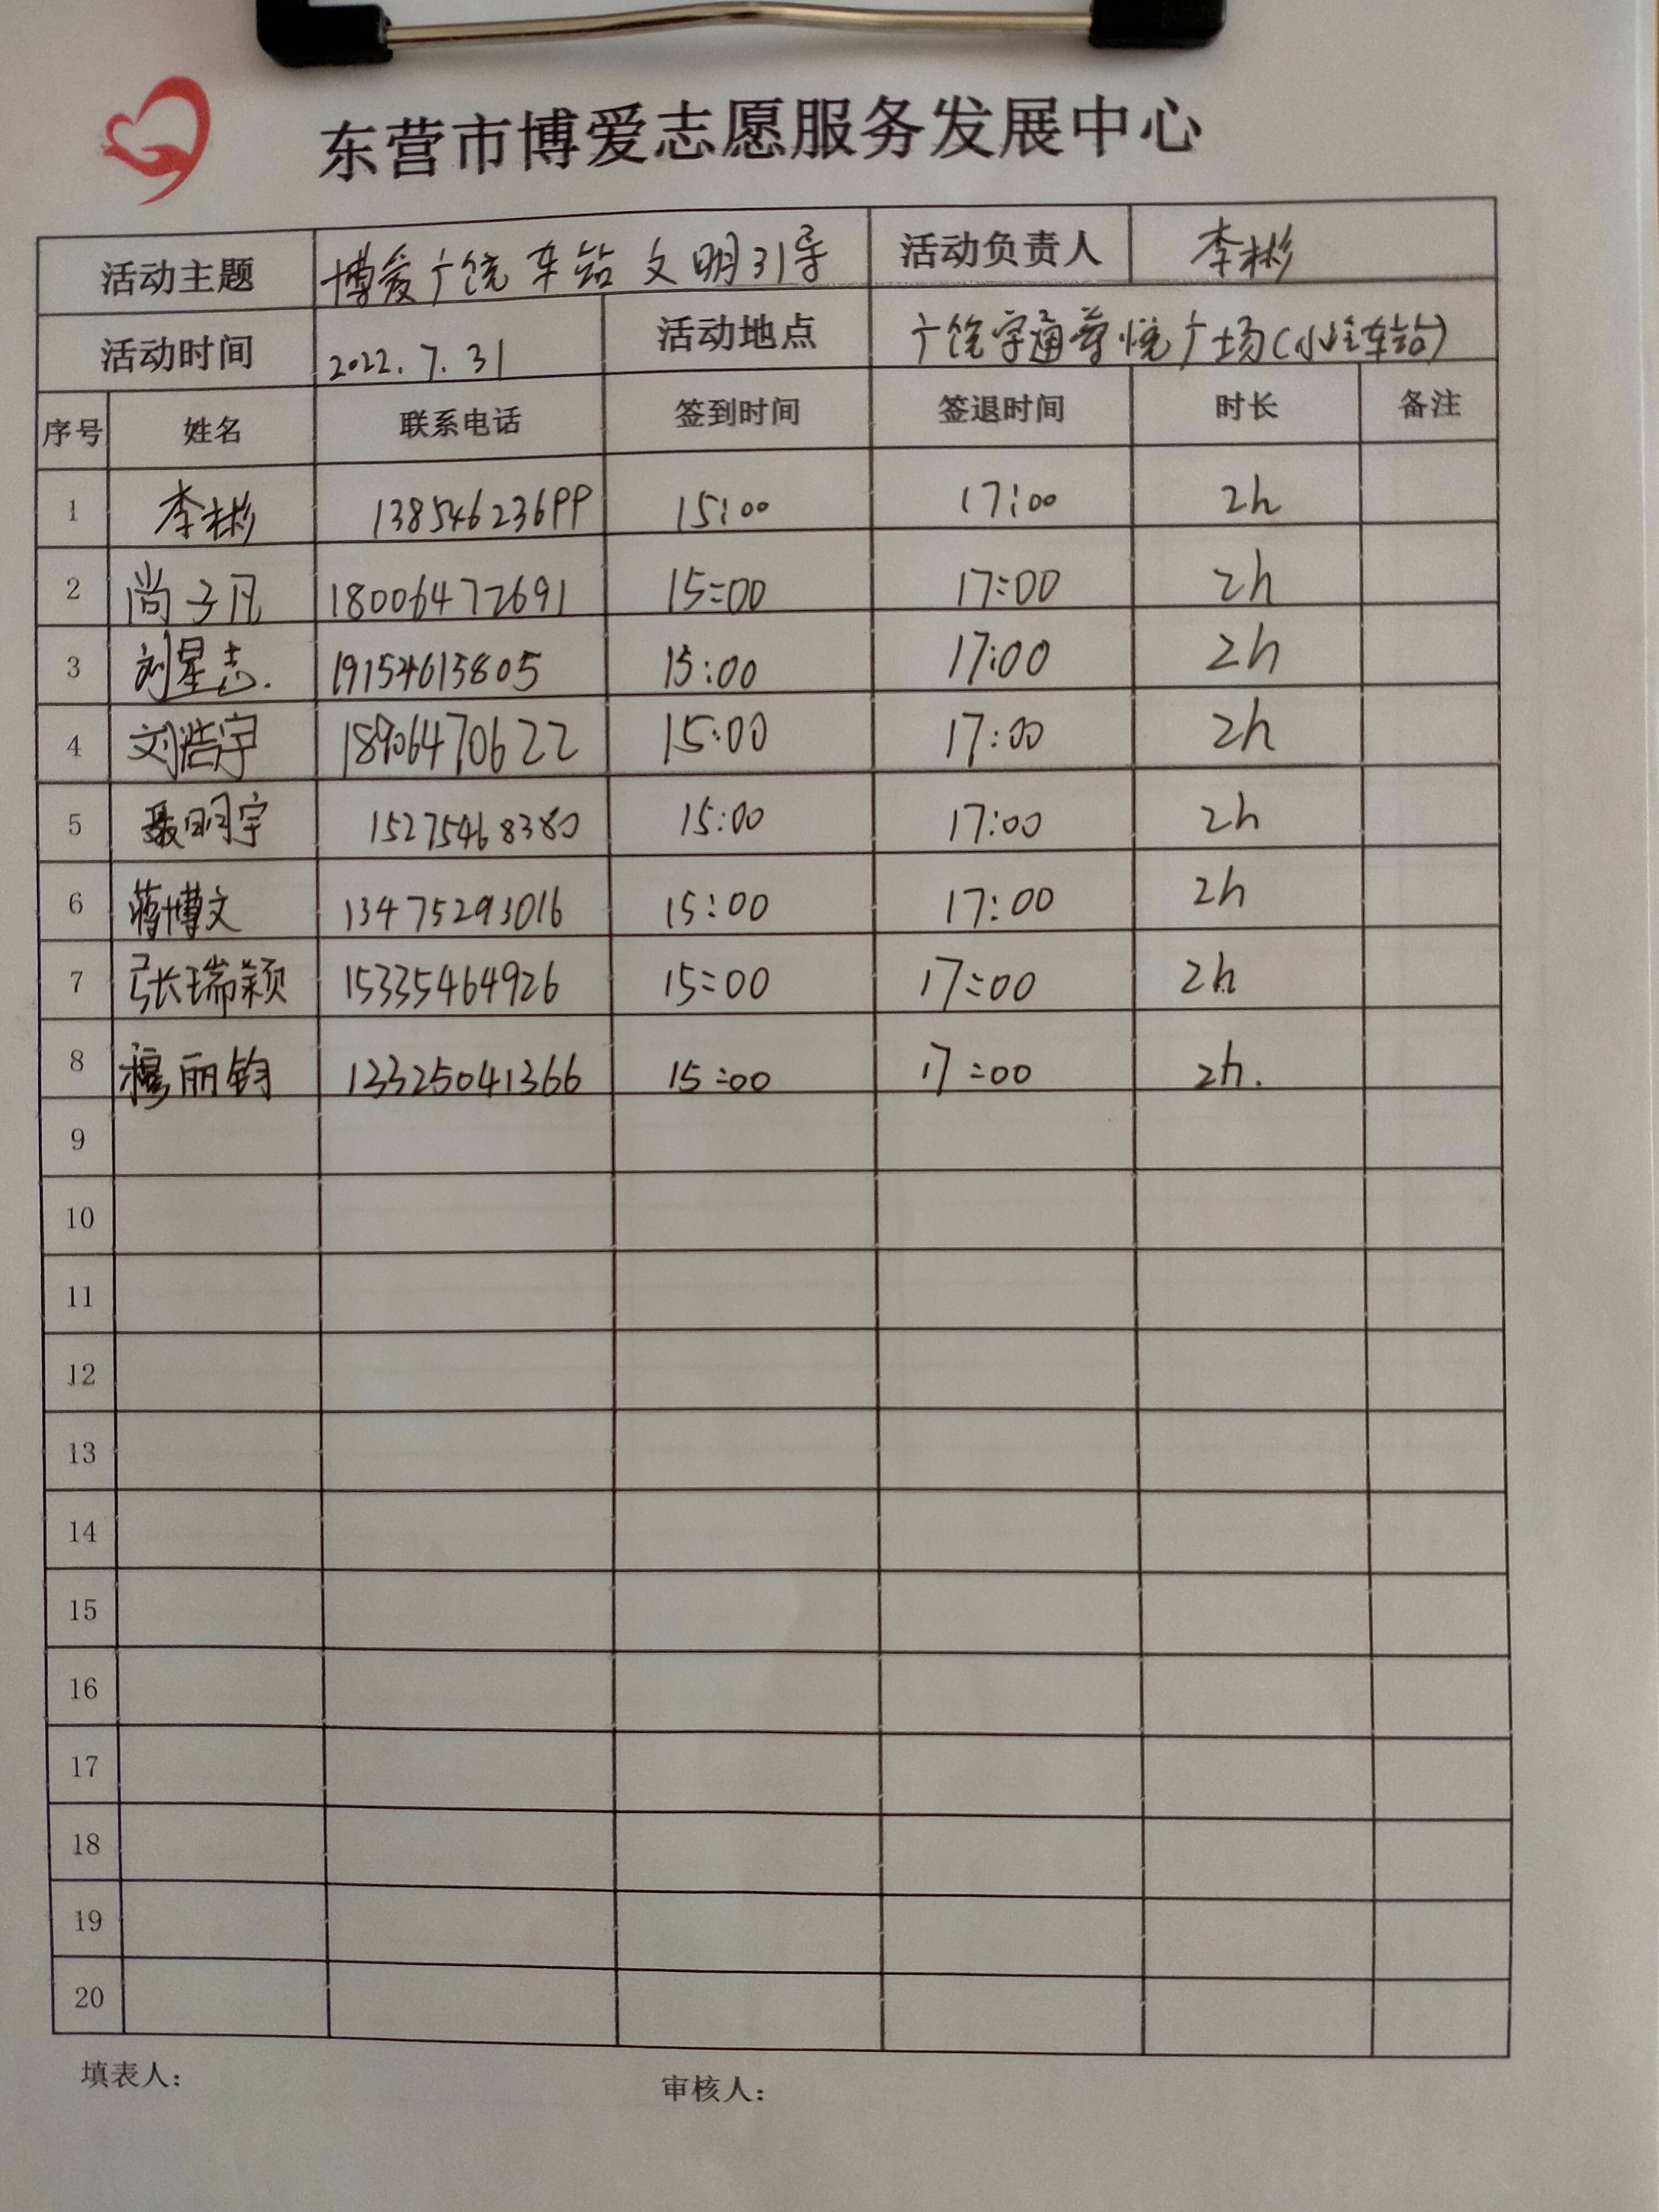 东营市博爱志愿服务发展中心
活动主题 博爱广饶车站文明引导 活动负责人 李彬
活动时间 2022.7.31 活动地点 广饶宇通尊悦广场(小 车站)
序号 姓名 联系电话 签到时间 签退时间 时长 备注
1 李彬 13854623699 15:00 17:00 2h
2 尚子凡 18006477691 15:00 17:00 2h
3 刘星志. 19154615805 15:00 17:00 2h
4 刘浩宇 18906470622 15:00 17:00 2h
5 聂明宇 15275468380 15:00 17:00 2h
6 蒋博文 13475293016 15:00 17:00 2h
7 张瑞颖 15335464926 15:00 17:00 2h
8 穆丽钧 13325041366 15:00 17:00 2h.
9
10
11
12
13
14
15
16
17
18
19
20
填表人: 审核人: